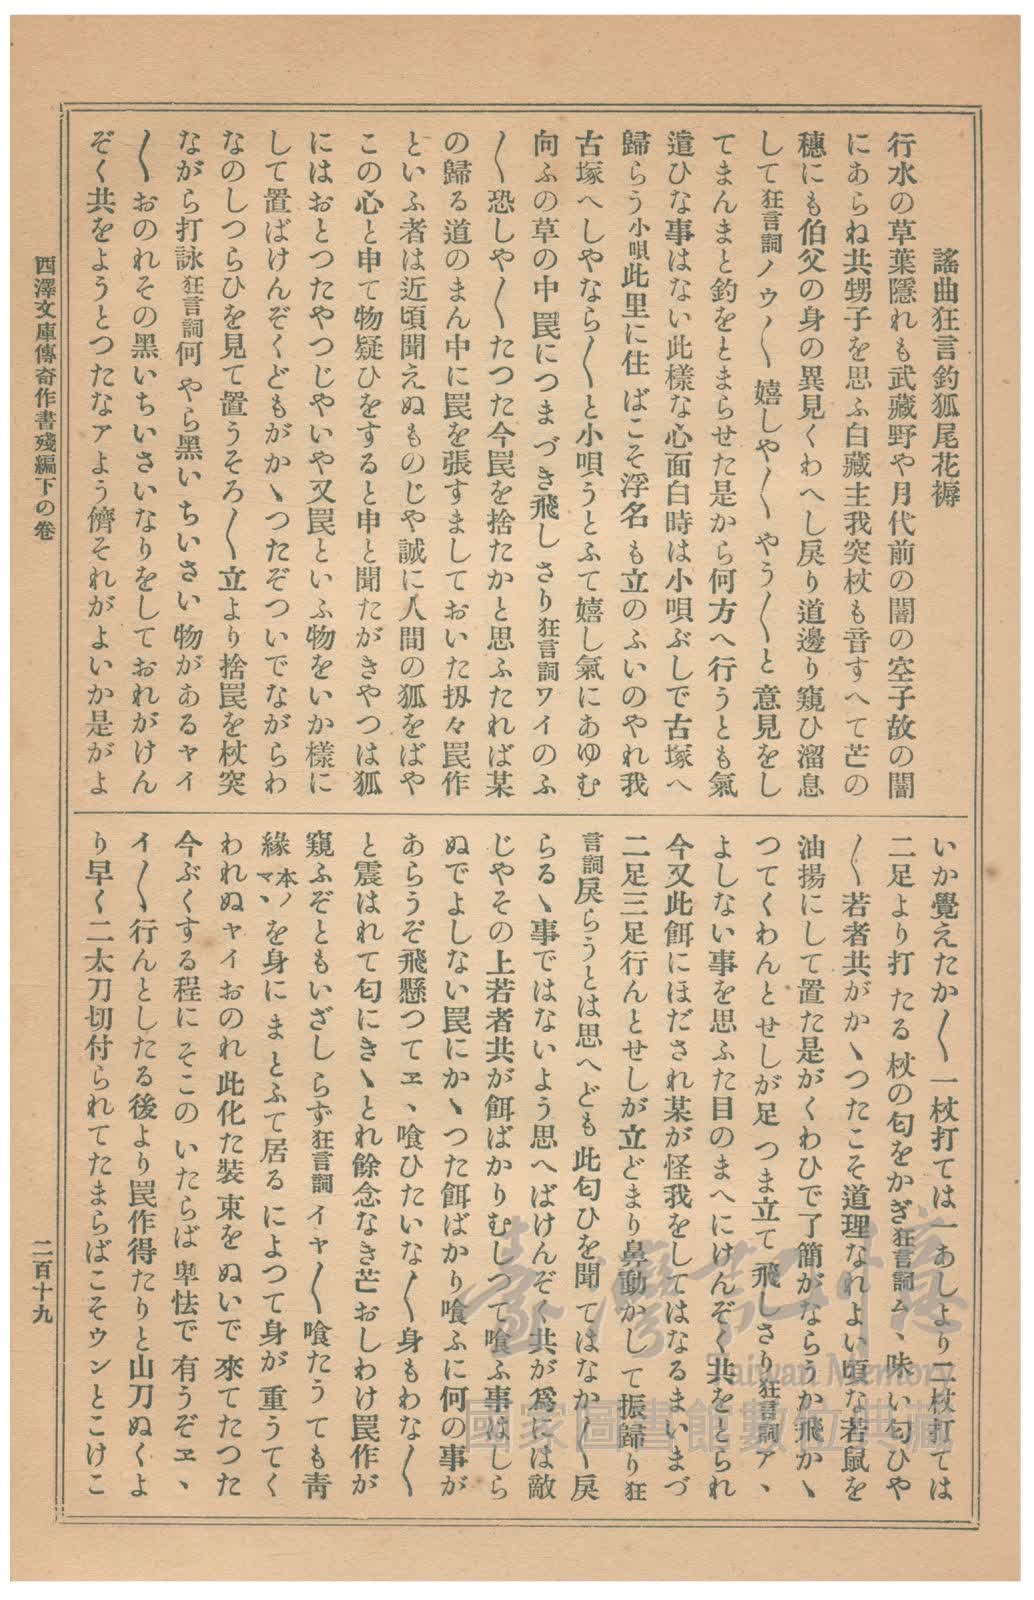 謠曲狂言釣狐尾花褥
行水の草葉隱れも武藏野や月代前の闇の空子故の闇
にあらね共甥子を思ふ白藏主我突杖も音すへて芒の
穗にも伯父の身の異見くわへし戾り道邊り窺ひ溜息
して狂言詞ノウ〳〵嬉しや〳〵やう〳〵と意見をし
てまんまと釣をとまらせた是から何方へ行うとも氣
遣ひな事はない此樣な心面白時は小唄ぶしで古塚へ
歸らう小唄此里に住ばこそ浮名も立のふいのやれ我
古塚へしやなら〳〵と小唄うとふて嬉し氣にあゆむ
向ふの草の中罠につまづき飛しさり狂言詞ワイのふ
〳〵恐しや〳〵たつた今罠を捨たかと思ふたれば某
の歸る道のまん中に罠を張すましておいた扨々罠作
といふ者は近頃聞えぬものじや誠に人間の狐をばや
この心と申て物疑ひをすると申と聞たがきやつは狐
にはおとつたやつじやいや又罠といふ物をいか樣に
して置ばけんぞくどもがかゝつたぞついでながらわ
なのしつらひを見て置うそろ〳〵立より捨罠を杖突
ながら打詠狂言詞何やら黑いちいさい物があるャイ
〳〵おのれその黑いちいさいなりをしておれがけん
ぞく共をようとつたなアよう儕それがよいか是がよ
いか覺えたか〳〵一杖打ては一あしより二杖打ては
二足より打たる杖の匂をかぎ狂言詞ム、味い匂ひや
〳〵若者共がかゝつたこそ道理なれよい頃な若鼠を
油揚にして置た是がくわひで了簡がならうか飛かゝ
つてくわんとせしが足つま立て飛しさり狂言詞ア、
よしない事を思ふた目のまへにけんぞく共をとられ
今又此餌にほだされ某が怪我をしてはなるまいまづ
二足三足行んとせしが立どまり鼻動かして振歸り狂
言詞戾らうとは思へども此匂ひを聞てはなか〳〵戾
らるゝ事ではないよう思へばけんぞく共が爲には敵
じやその上若者共が餌ばかりむしつて喰ふ事はしら
ぬでよしない罠にかゝつた餌ばかり喰ふに何の事が
あらうぞ飛懸つてエ、喰ひたいな〳〵身もわな〳〵
と震はれて匂にきゝとれ餘念なき芒おしわけ罠作が
窺ふぞともいざしらず狂言詞イャ〳〵喰たうても靑
緣本ノマヽを身にまとふて居るによつて身が重うてく
われぬャイおのれ此化た裝束をぬいで來てたつた
今ぶくする程にそこのいたらば卑怯で有うぞエ、
イ〳〵行んとしたる後より罠作得たりと山刀ぬくよ
り早く二太刀切付られてたまらばこそゥンとこけこ
西澤文庫傳奇作書殘編下の卷
二百十九
臺灣記憶
Taiwan Memory
國家圖書館數位典藏